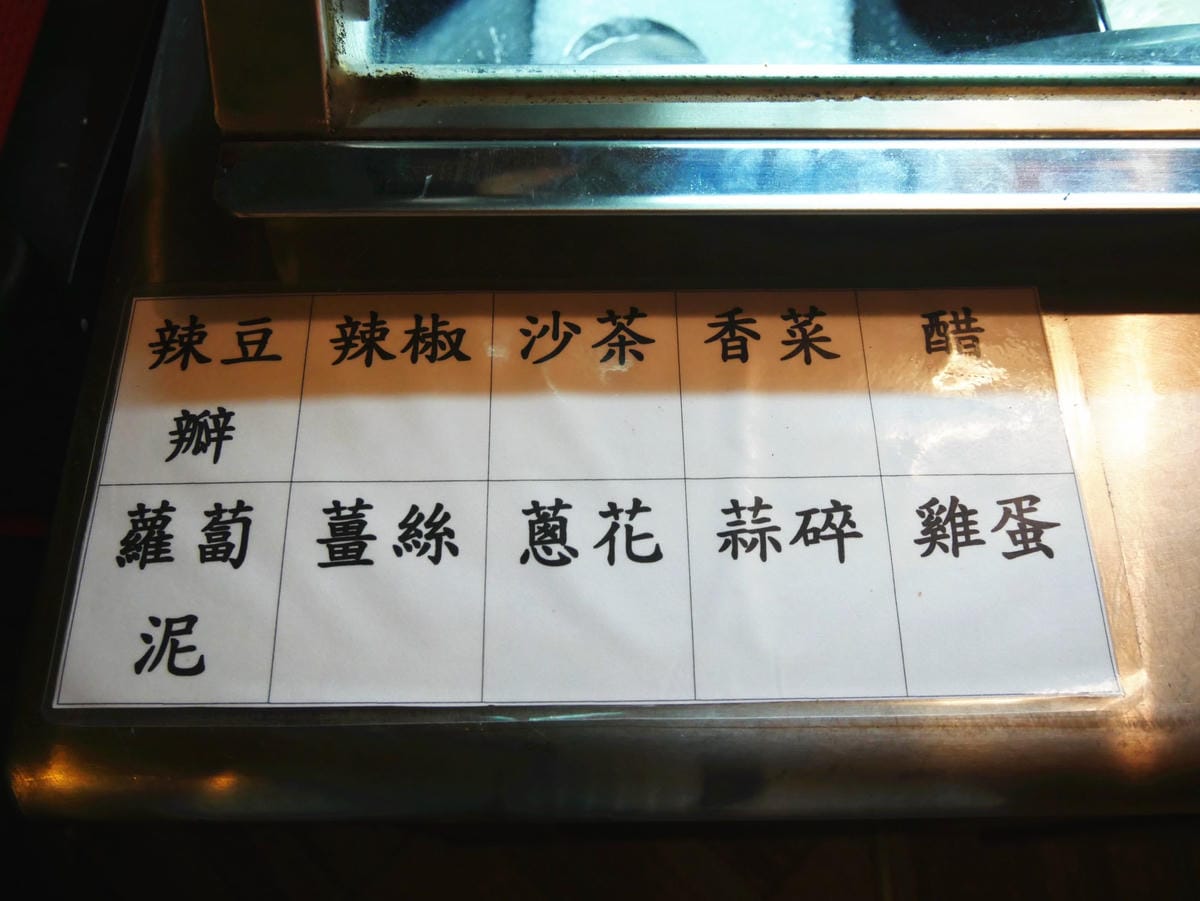 辣豆瓣
辣椒
沙茶
香菜
醋
蘿蔔泥
薑絲
蔥花
蒜碎
雞蛋